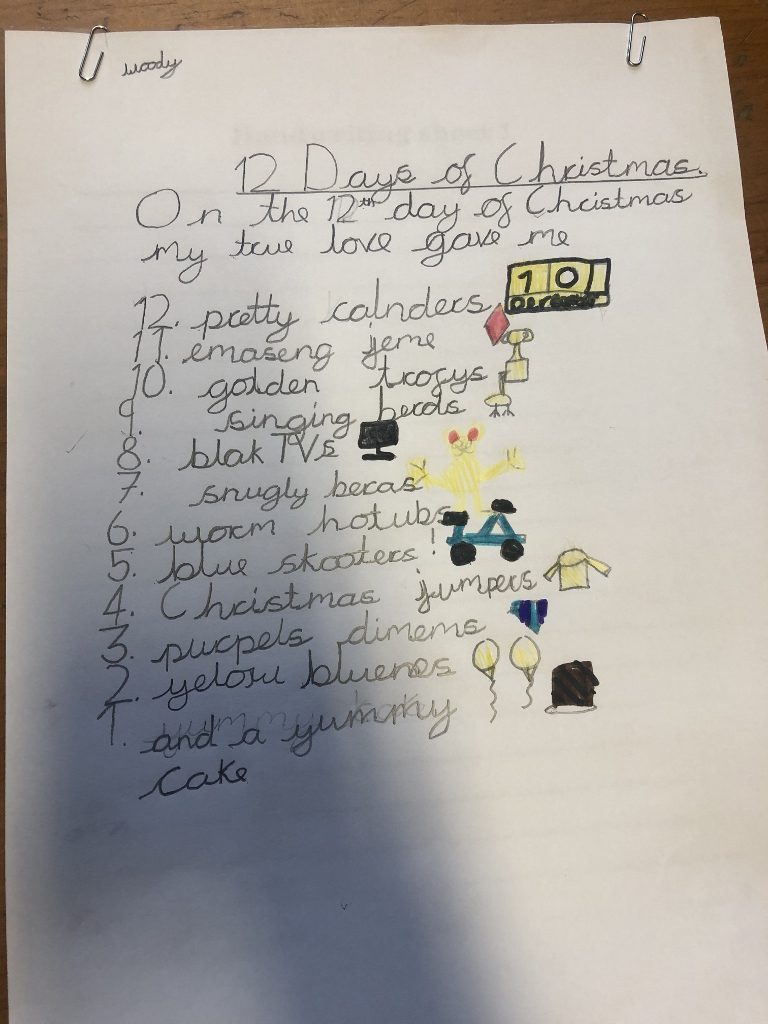 woody
12 Days of Christmas.
On the 12th day of Christmas
my true love gave me
12. pretty calnders
10
11. emaseng jeme
10. golden trofys
9. singing berds
8. blak TVs
7. snugly beras
6. worm hotubs
5. blue skooters!
4. Christmas jumpers
3. purpels dimems
2. yelow bluenes
1. and a yummy
cake